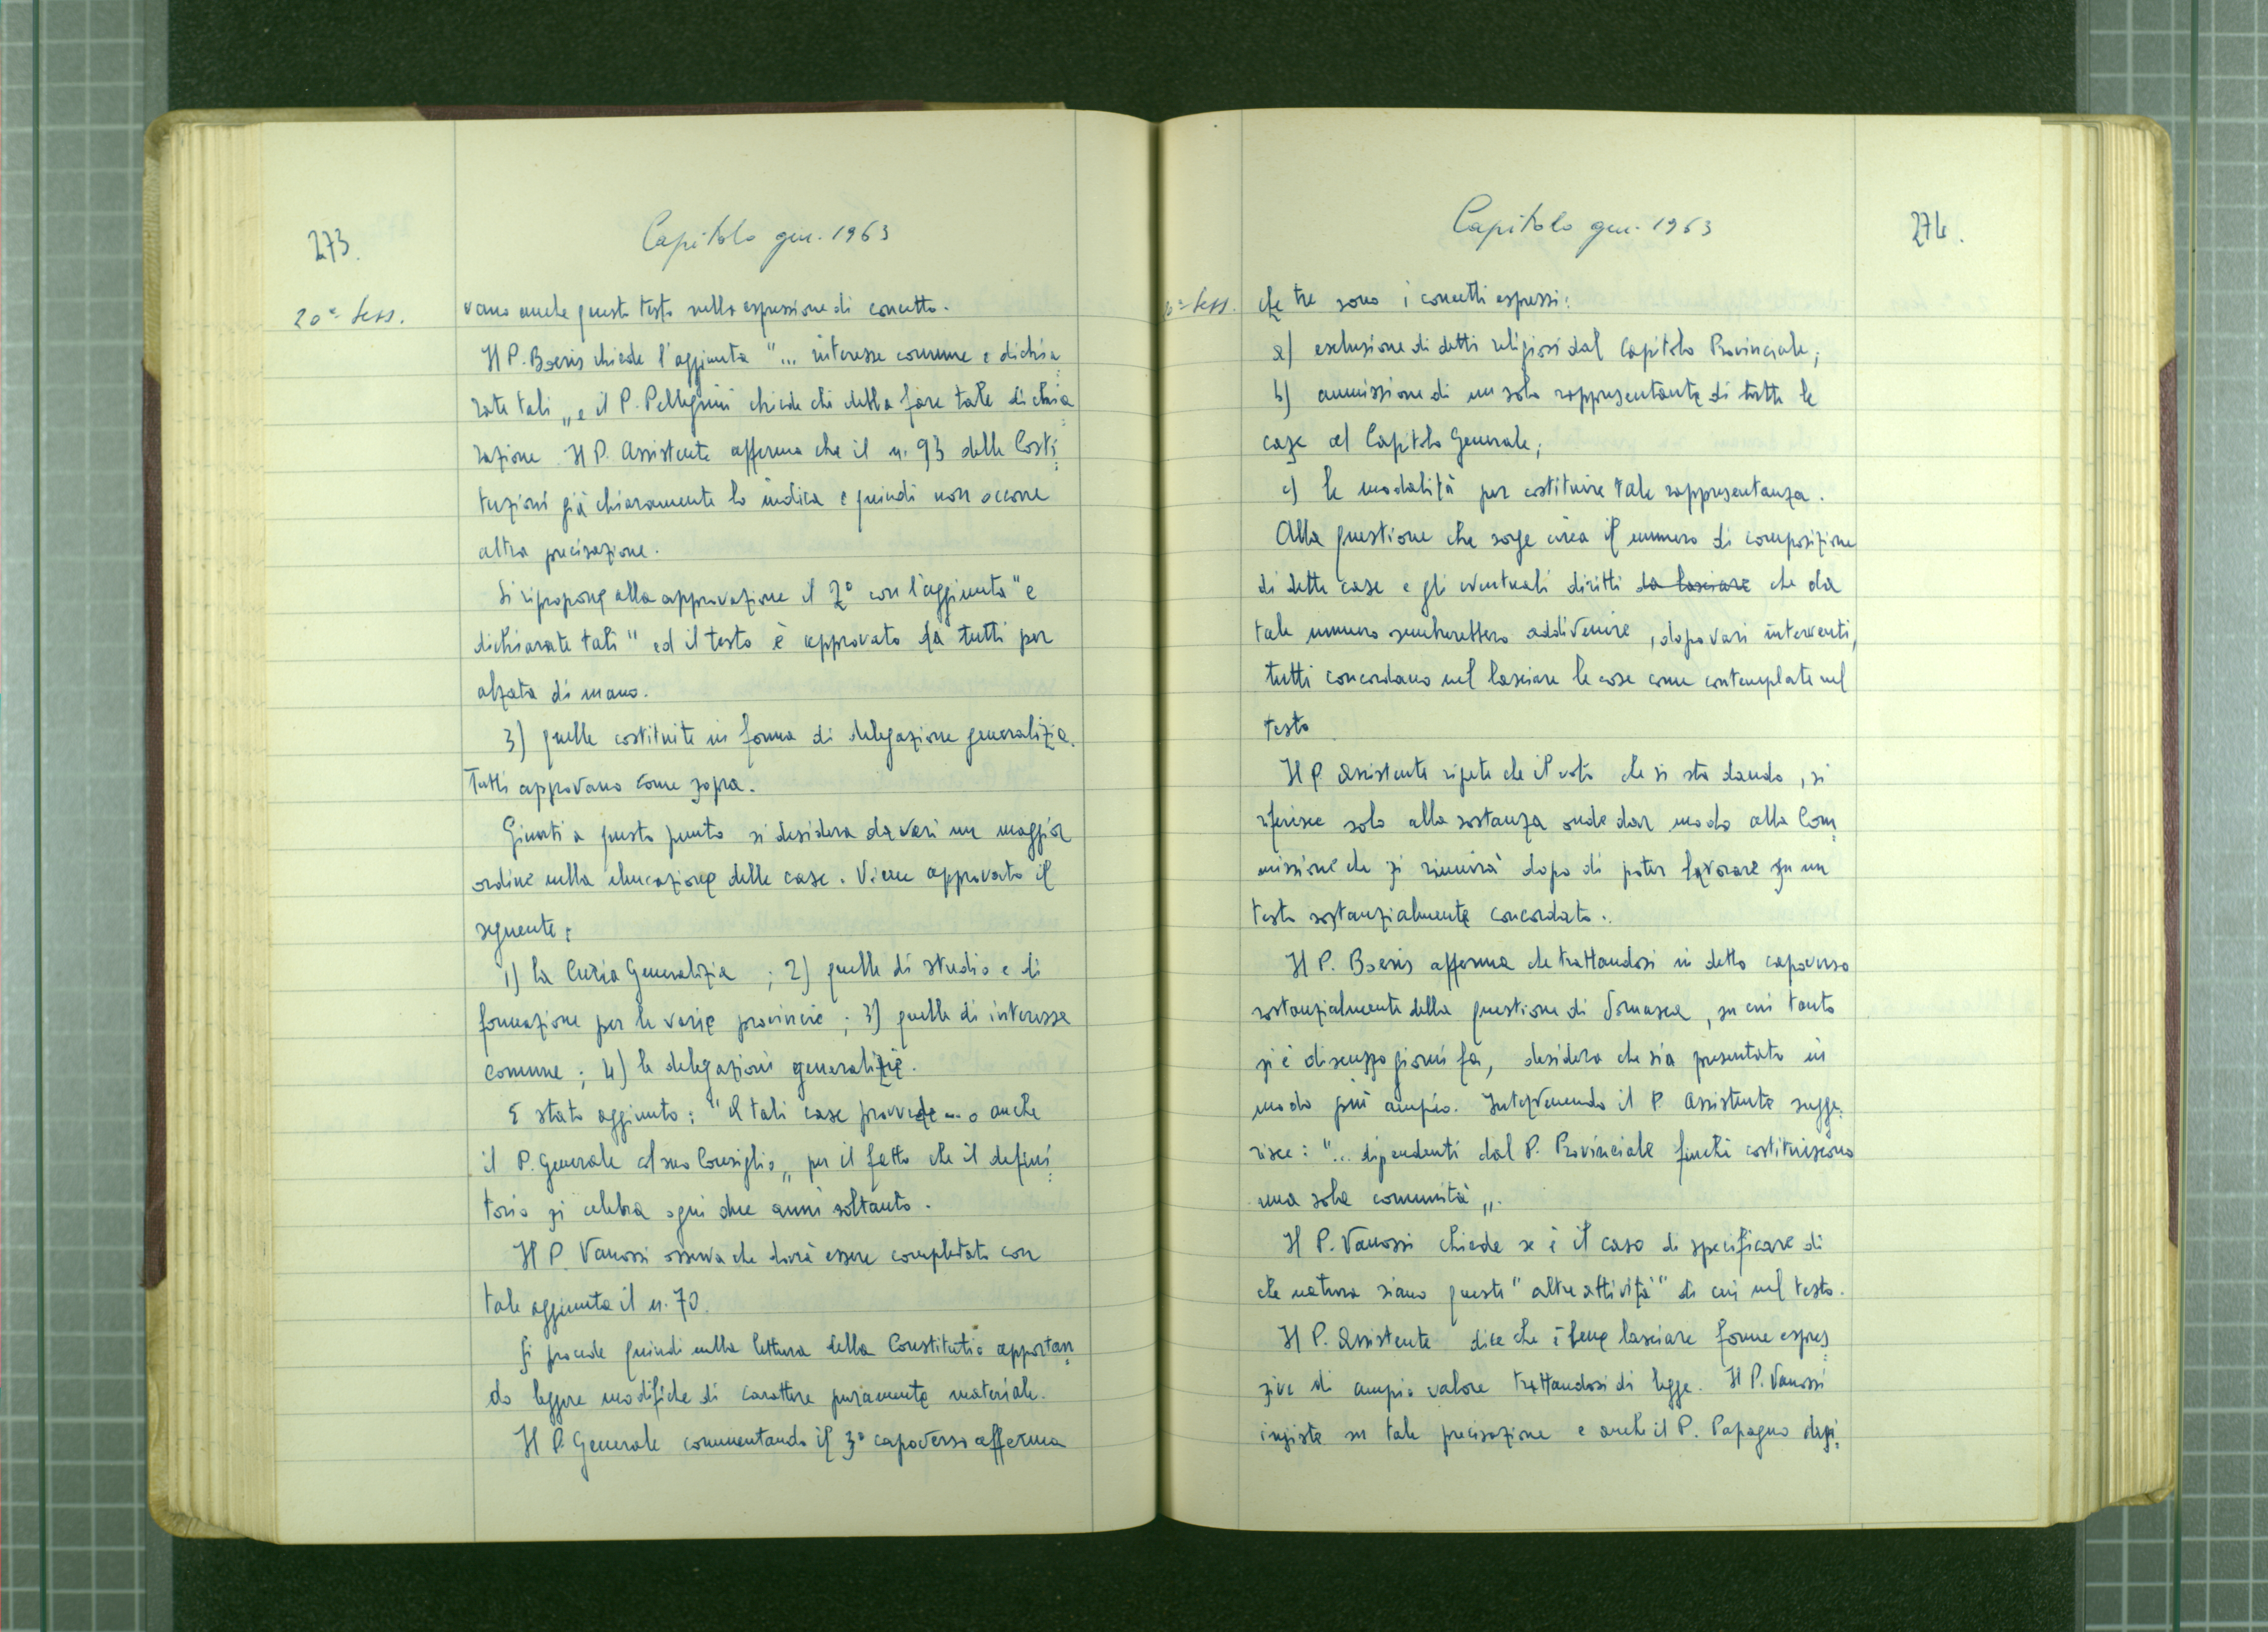 273.
Capitolo gen. 1963
20ª Sess.
vano anche questo testo nella espressione di concetto.
Il P. Boeris chiede l'aggiunta "... interesse comune e dichia=
rate tali„ e il P. Pellegrini chiede chi debba fare tale dichia=
razione. Il P. Assistente afferma che il n. 93 delle Costi=
tuzioni già chiaramente lo indica e quindi non occorre
altra precisazione.
Si ripropone alla approvazione il 2º con l'aggiunta "e
dichiarate tali" ed il testo è approvato da tutti per
alzata di mano.
3) quelle costituite in forma di delegazione generalizia.
Tutti approvano come sopra.
Giunti a questo punto si desidera da vari un maggior
ordine nella elencazione delle case. Viene approvato il
seguente:
1) la Curia Generalizia ; 2) quelle di studio e di
formazione per le varie provincie ; 3) quelle di interesse
comune ; 4) le delegazioni generalizie.
È stato aggiunto: "A tali case provvede ... o anche
il P. Generale col suo Consiglio„ per il fatto che il defini=
torio si celebra ogni due anni soltanto.
Il P. Vanossi osserva che dovrà essere completato con
tale aggiunta il n. 70.
Si procede quindi nella lettura della Constitutio apportan=
do leggere modifiche di carattere puramente materiale.
Il P. Generale commentando il 3º capoverso afferma
Capitolo gen. 1963
274.
0ª Sess.
che tre sono i concetti espressi:
a) esclusione di detti religiosi dal Capitolo Provinciale;
b) ammissione di un solo rappresentante di tutte le
case al Capitolo Generale;
c) le modalità per costituire tale rappresentanza.
Alla questione che sorge circa il numero di composizione
di dette case e gli eventuali diritti da lasciare che da
tale numero sembrerebbero addivenire, dopo vari interventi,
tutti concordano nel lasciare le cose come contemplate nel
testo
Il P. Assistente ripete che il voto che si sta dando, si
riferisce solo alla sostanza onde dar modo alla Com=
missione che si riunirà dopo di poter lavorare su un
testo sostanzialmente concordato.
Il P. Boeris afferma che trattandosi in detto capoverso
sostanzialmente della questione di Somasca, su cui tanto
si è discusso giorni fa, desidera che sia presentato in
modo più ampio. Intervenendo il P. Assistente sugge=
risce: "... dipendenti dal P. Provinciale finché costituiscono
una sola comunità„.
Il P. Vanossi chiede se è il caso di specificare di
che natura siano queste "altre attività" di cui nel testo.
Il P. Assistente dice che è bene lasciare forme espres=
sive di ampio valore trattandosi di legge. Il P. Vanossi
insiste su tale precisazione e anche il P. Papagno desi=